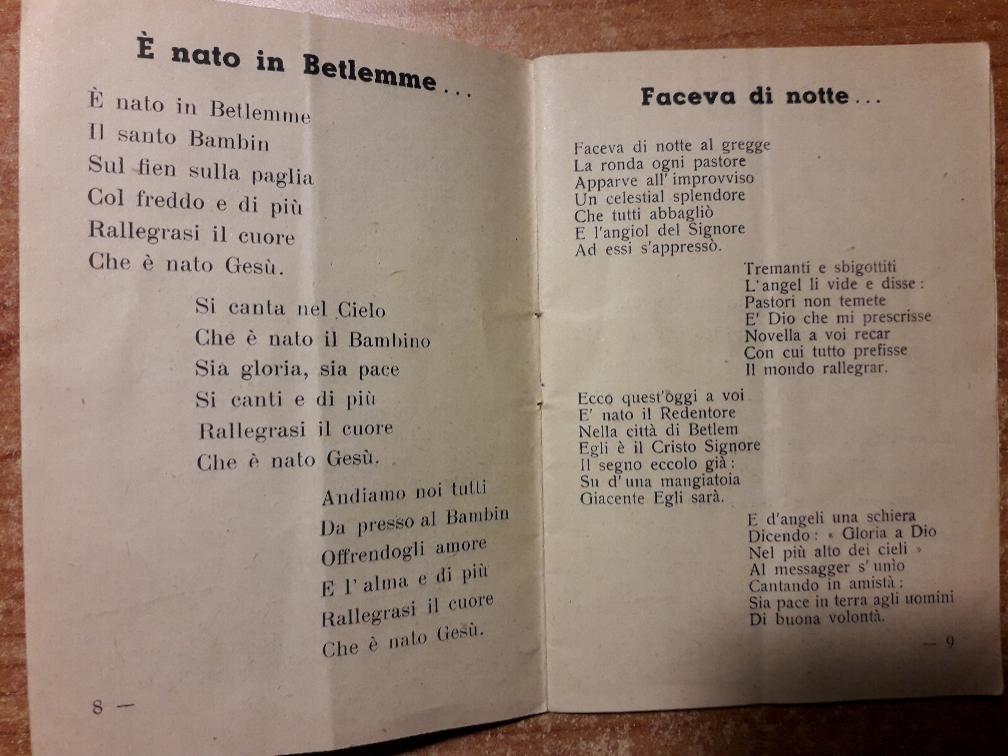 È nato in Betlemme...
È nato in Betlemme
Il santo Bambin
Sul fien sulla paglia
Col freddo e di più
Rallegrasi il cuore
Che è nato Gesù.
Si canta nel Cielo
Che è nato il Bambino
Sia gloria, sia pace
Si canti e di più
Rallegrasi il cuore
Che è nato Gesù.
Andiamo noi tutti
Da presso al Bambin
Offrendogli amore
E l'alma e di più
Rallegrasi il cuore
Che è nato Gesù.
8 —
Faceva di notte...
Faceva di notte al gregge
La ronda ogni pastore
Apparve all'improvviso
Un celestial splendore
Che tutti abbagliò
E l'angiol del Signore
Ad essi s'appressò.
Tremanti e sbigottiti
L'angel li vide e disse:
Pastori non temete
E' Dio che mi prescrisse
Novella a voi recar
Con cui tutto prefisse
Il mondo rallegrar.
Ecco quest'oggi a voi
E' nato il Redentore
Nella città di Betlem
Egli è il Cristo Signore
Il segno eccolo già:
Su d'una mangiatoia
Giacente Egli sarà.
E d'angeli una schiera
Dicendo: « Gloria a Dio
Nel più alto dei cieli »
Al messagger s'unìo
Cantando in amistà:
Sia pace in terra agli uomini
Di buona volontà.
— 9